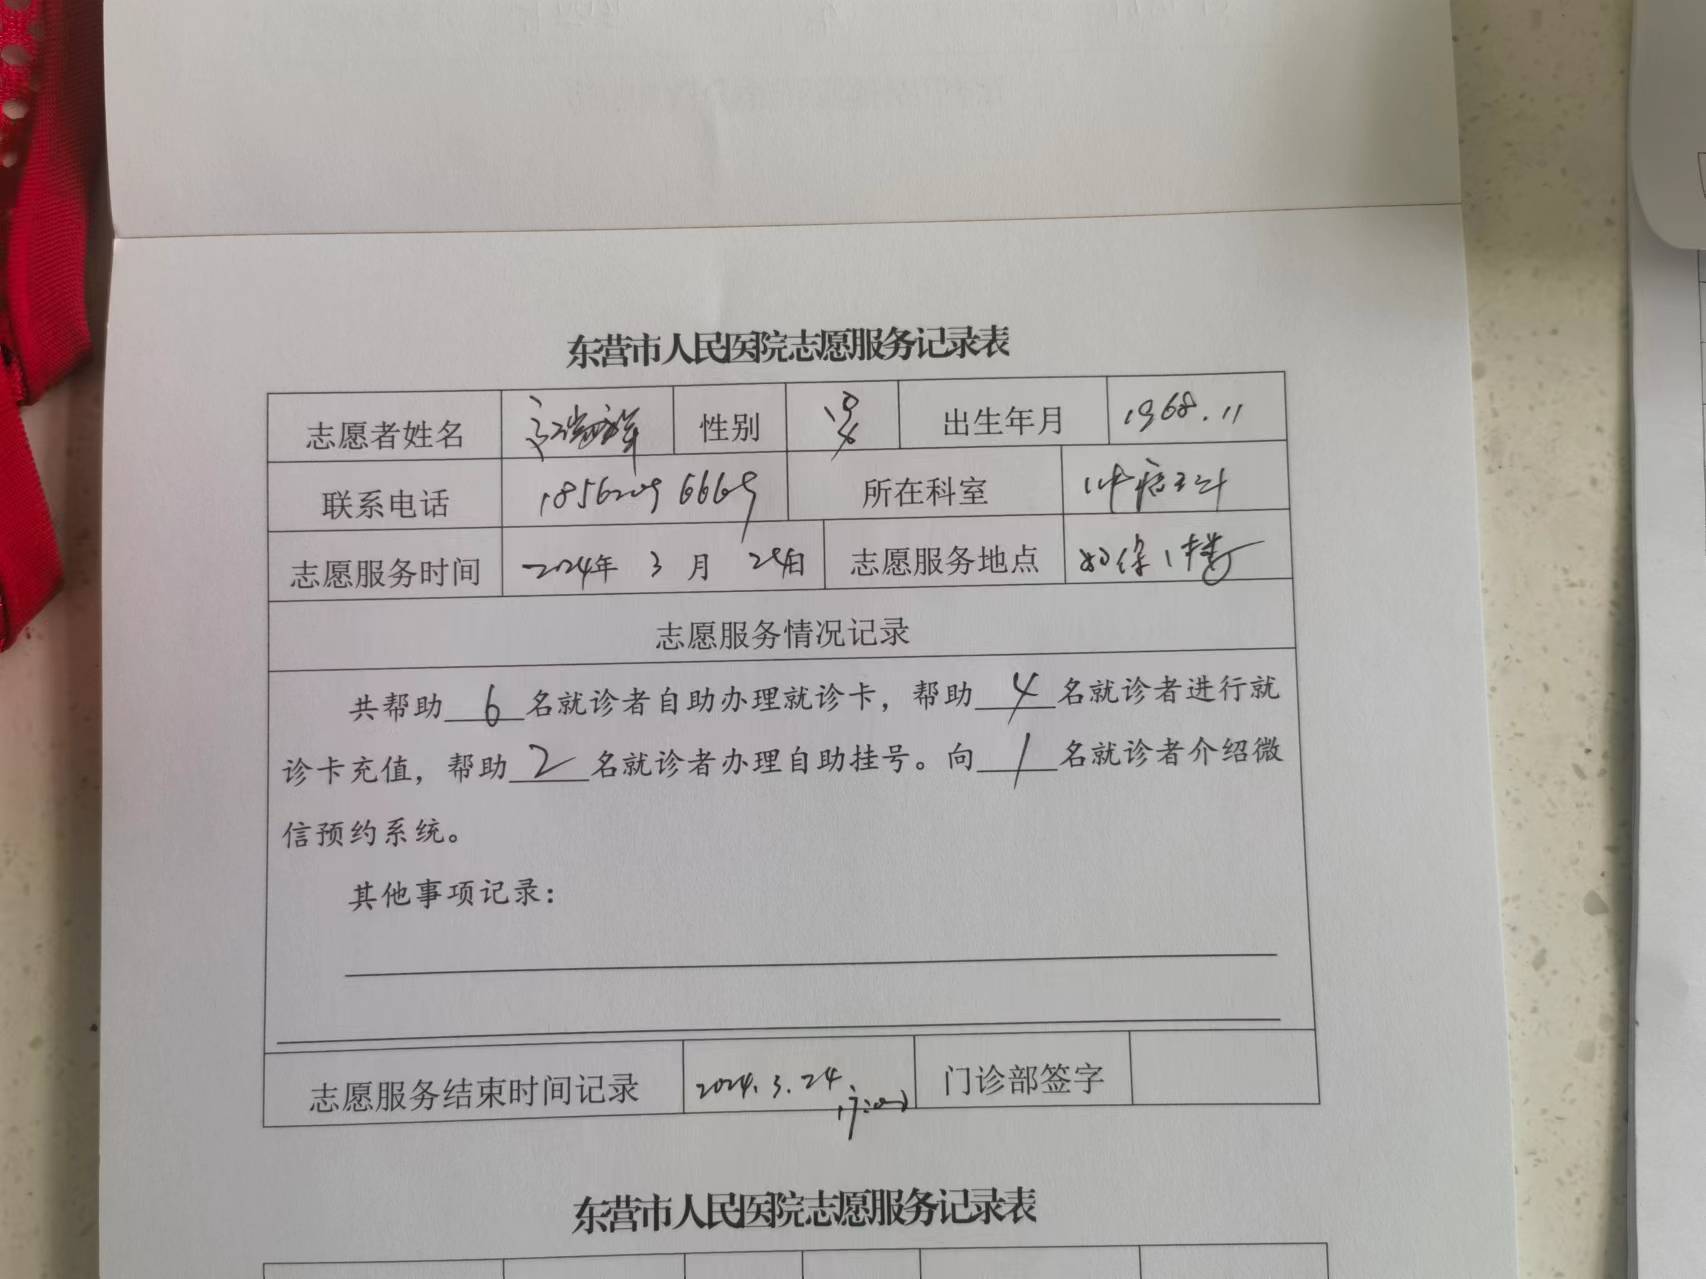 东营市人民医院志愿服务记录表
志愿者姓名 性别 男 出生年月 1968.11
联系电话 所在科室
志愿服务时间 2024年 3 月 24日 志愿服务地点 1楼
志愿服务情况记录
共帮助 6 名就诊者自助办理就诊卡，帮助 4 名就诊者进行就
诊卡充值，帮助 2 名就诊者办理自助挂号。向 1 名就诊者介绍微
信预约系统。
其他事项记录：
志愿服务结束时间记录 2024.3.24 门诊部签字
东营市人民医院志愿服务记录表